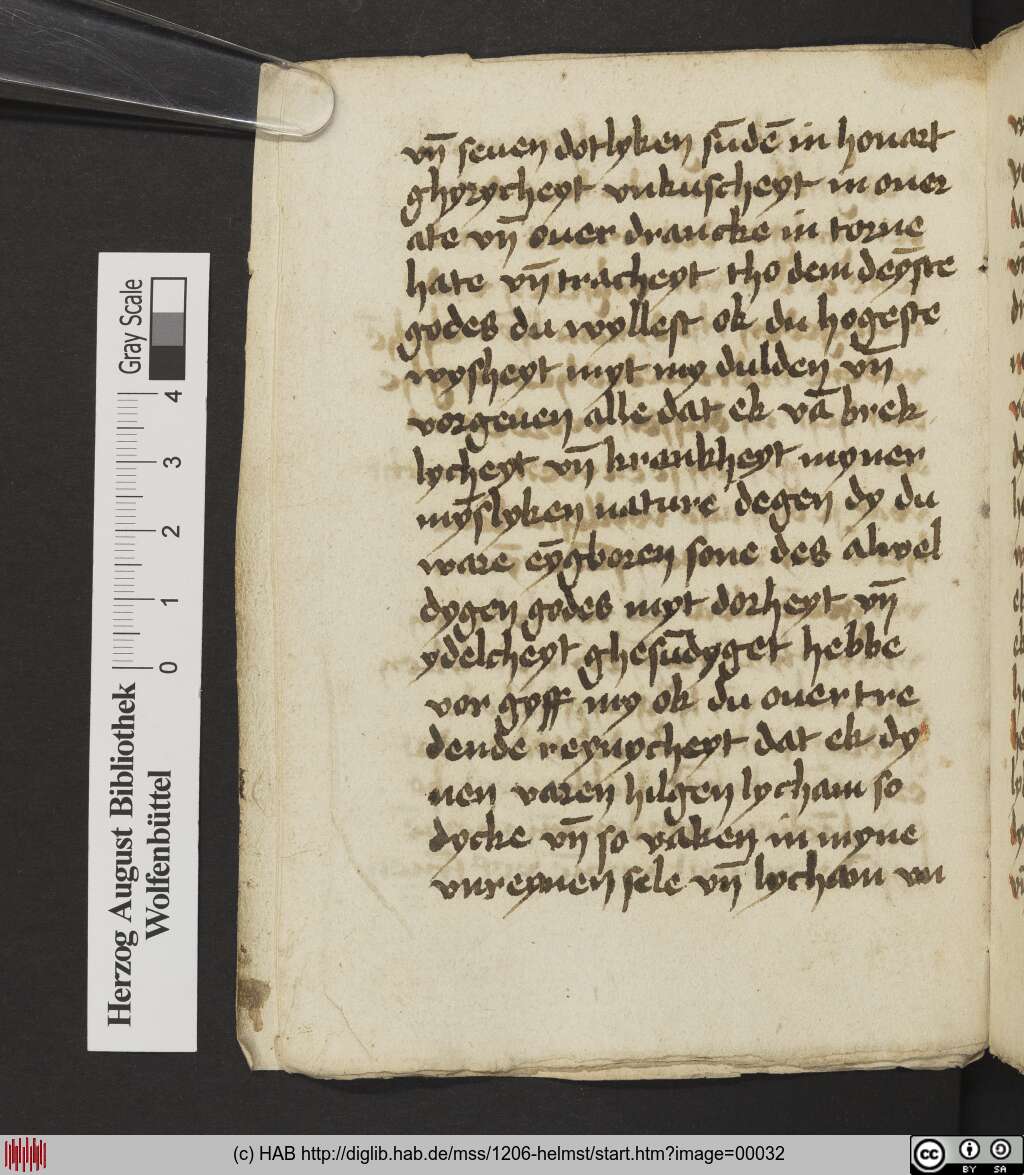 vn̄ seuen dotlyken sūdē in houart
ghyrycheyt vnkuscheyt in ouer
ate vn̄ ouer drancke in torne
hate vn̄ tracheyt tho dem deȳste
godes du wyllest ok du hogeste
wysheyt myt my dulden vn̄
vorgeuen alle dat ek vā brek
lycheyt vn̄ krankheyt myner
mȳslyken nature degen dy du
ware eȳgboren sone des alwel
dygen godes myt dorheyt vn̄
ydelcheyt ghesūdyget hebbe
vor gyff my ok du ouertre
dende reynycheyt dat ek dy
nen varen hilgen lycham so
dycke vn̄ so vaken in myne
vnreynen sele vn̄ lycham vn
Herzog August Bibliothek
Wolfenbüttel
0 1 2 3 4
Gray Scale
(c) HAB http://diglib.hab.de/mss/1206-helmst/start.htm?image=00032
cc BY SA